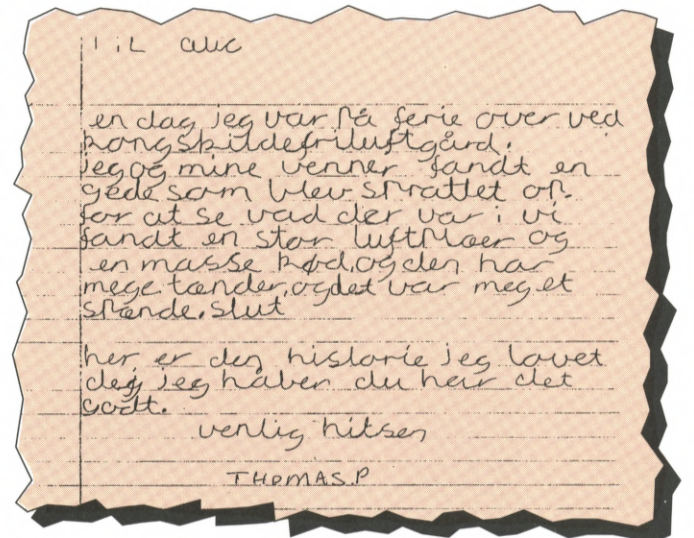 TiL
en dag jeg var på ferie over ved
kongskildefriluftgård.
jeg og mine venner fandt en
gede som blev sprattet op.
for at se vad der var i vi
fandt en stor luftblaer og
en masse kød.og den har
mege tænder.og det var meget
spænde.slut
her er den historie jeg lovet
dig jeg håber du har det
godt.
venlig hilsen
THOMAS.P